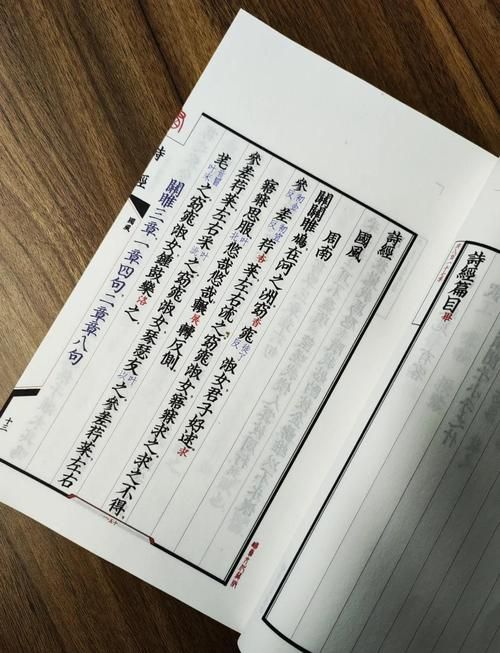 詩經篇目
詩經
國風
周南
關關雎鳩在河之洲窈杳窕徒了反淑女君子好逑求
參初金反差初宜反荇杏菜左右流之窈窕淑女寤寐求之求之不得
寤寐思服悠哉悠哉輾展轉反側
參差荇菜左右采之窈窕淑女琴瑟友之參差荇菜左右
芼之窈窕淑女鍾鼓樂洛之
關雎三章一章四句二章章八句
詩經
國風
十三